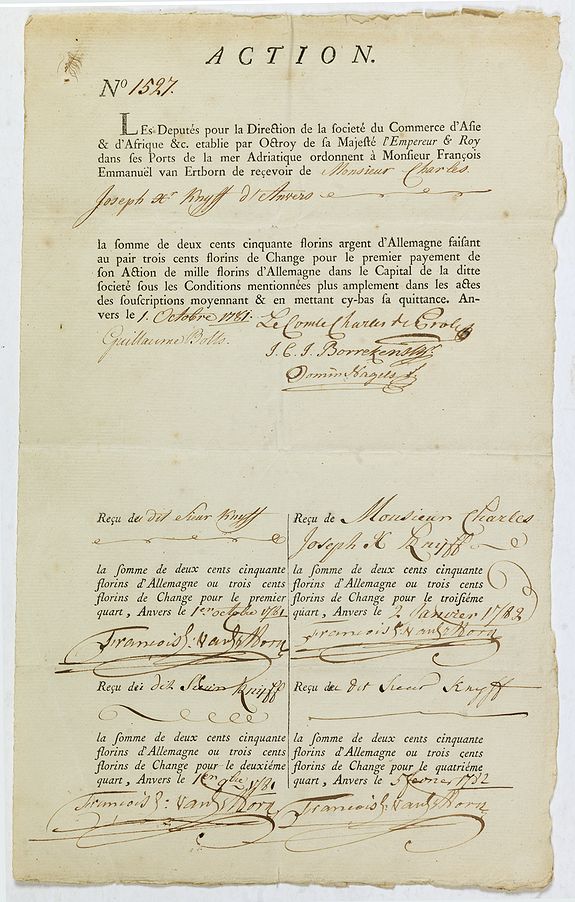 ACTION.
Nº 1527.
LEs Deputés pour la Direction de la societé du Commerce d'Asie
& d'Afrique &c. etablie par Octroy de sa Majesté l'Empereur & Roy
dans ses Ports de la mer Adriatique ordonnent à Monsieur François
Emmanuël van Ertborn de reçevoir de Monsieur Charles
Joseph Xr Knyff d'Anvers
la somme de deux cents cinquante florins argent d'Allemagne faisant
au pair trois cents florins de Change pour le premier payement de
son Action de mille florins d'Allemagne dans le Capital de la ditte
societé sous les Conditions mentionnées plus amplement dans les actes
des souscriptions moyennant & en mettant cy-bas sa quittance. An-
vers le 1. Octobre 1781. Le Comte Charles de Proli
Guillaume Bolts.
J. E. J. Borrekens
Domin Nagels
Reçu du dit Sieur Knyff
la somme de deux cents cinquante
florins d'Allemagne ou trois cents
florins de Change pour le premier
quart, Anvers le 1er octobre 1781
François E: van Ertborn
Reçu de Monsieur Charles
Joseph X Knyff
la somme de deux cents cinquante
florins d'Allemagne ou trois cents
florins de Change pour le troisiéme
quart, Anvers le 2 Janvier 1782
François E: van Ertborn
Reçu du dit Sieur Knyff
la somme de deux cents cinquante
florins d'Allemagne ou trois cents
florins de Change pour le deuxiéme
quart, Anvers le 1er 9bre 1781
François E: van Ertborn
Reçu du dit Sieur Knyff
la somme de deux cents cinquante
florins d'Allemagne ou trois cents
florins de Change pour le quatriéme
quart, Anvers le 5 fevrier 1782
François E: van Ertborn